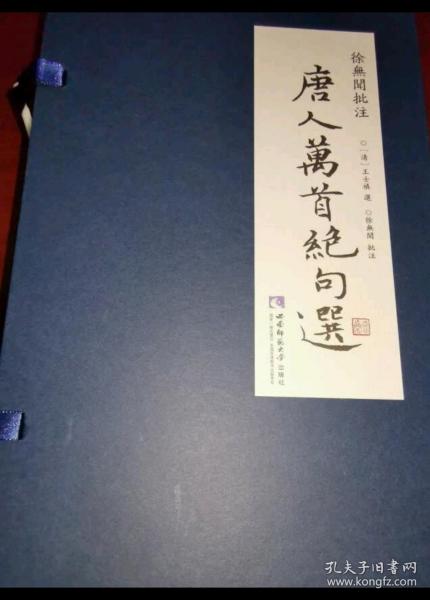 徐無聞批注
唐人萬首絶句選
◎〔清〕王士禛 選 ◎徐無聞 批注
西南師範大学出版社
孔夫子旧书网
www.kongfz.com